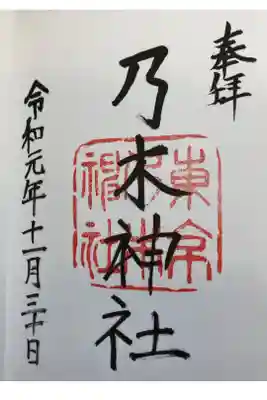 奉拝
乃木神社
東京
神社
令和元年十一月三十日